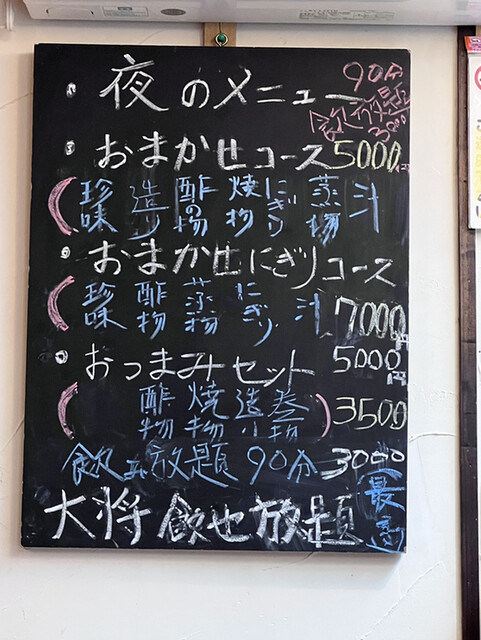 ・夜のメニュー
90分
飲み放題
3000
・おまかせコース 5000円
(珍味 造り 酢の物 焼物 にぎり 蒸物 汁
・おまかせにぎりコース
(珍味 酢物 蒸物 にぎり 汁 7000円
・おつまみセット 5000円
(酢物 焼物 造り 巻物) 3500
飲み放題 90分 3000
大将飲也放題